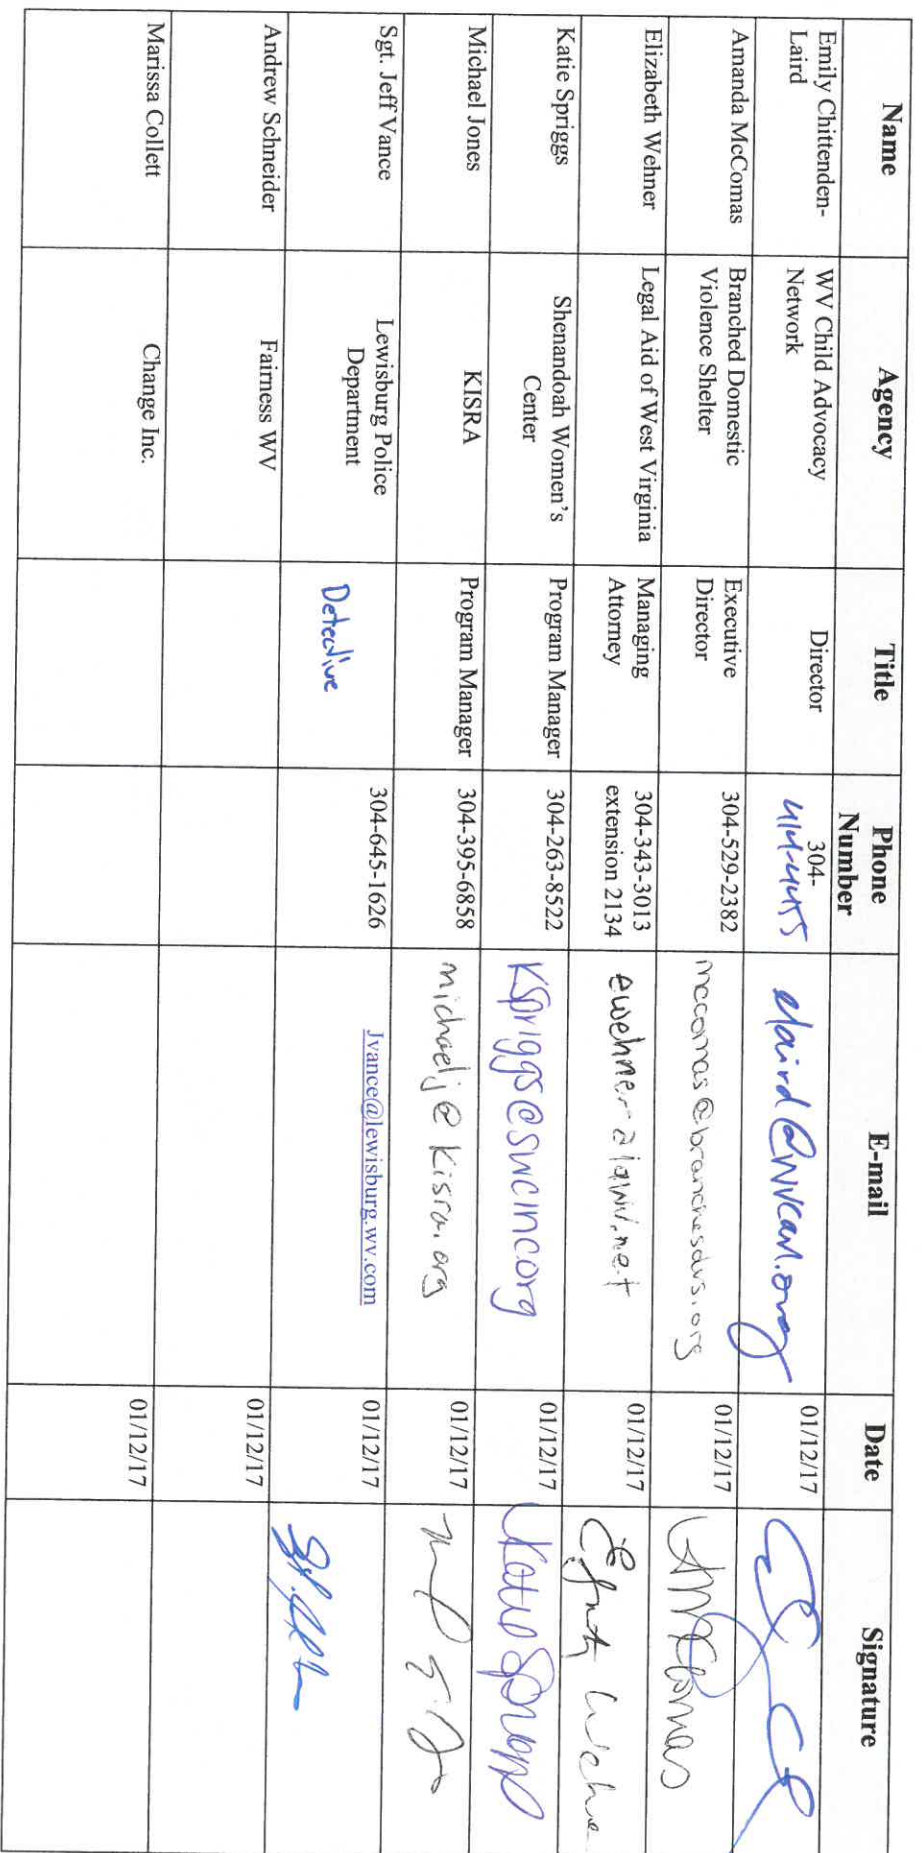 Name Agency Title Phone Number E-mail Date Signature
Emily Chittenden-
Laird
WV Child Advocacy
Network
Director
304-
414-4455
elaird@wvcan.org
01/12/17
Amanda McComas
Branched Domestic
Violence Shelter
Executive
Director
304-529-2382
mccomas@branchesdvs.org
01/12/17
Elizabeth Wehner
Legal Aid of West Virginia
Managing
Attorney
304-343-3013
extension 2134
01/12/17
Katie Spriggs
Shenandoah Women's
Center
Program Manager
304-263-8522
Kspriggs@swcinc.org
01/12/17
Katie Spriggs
Michael Jones
KISRA
Program Manager
304-395-6858
michaelj@kisra.org
01/12/17
Sgt. Jeff Vance
Lewisburg Police
Department
Detective
304-645-1626
Jvance@lewisburg.wv.com
01/12/17
Andrew Schneider
Fairness WV
01/12/17
Marissa Collett
Change Inc.
01/12/17